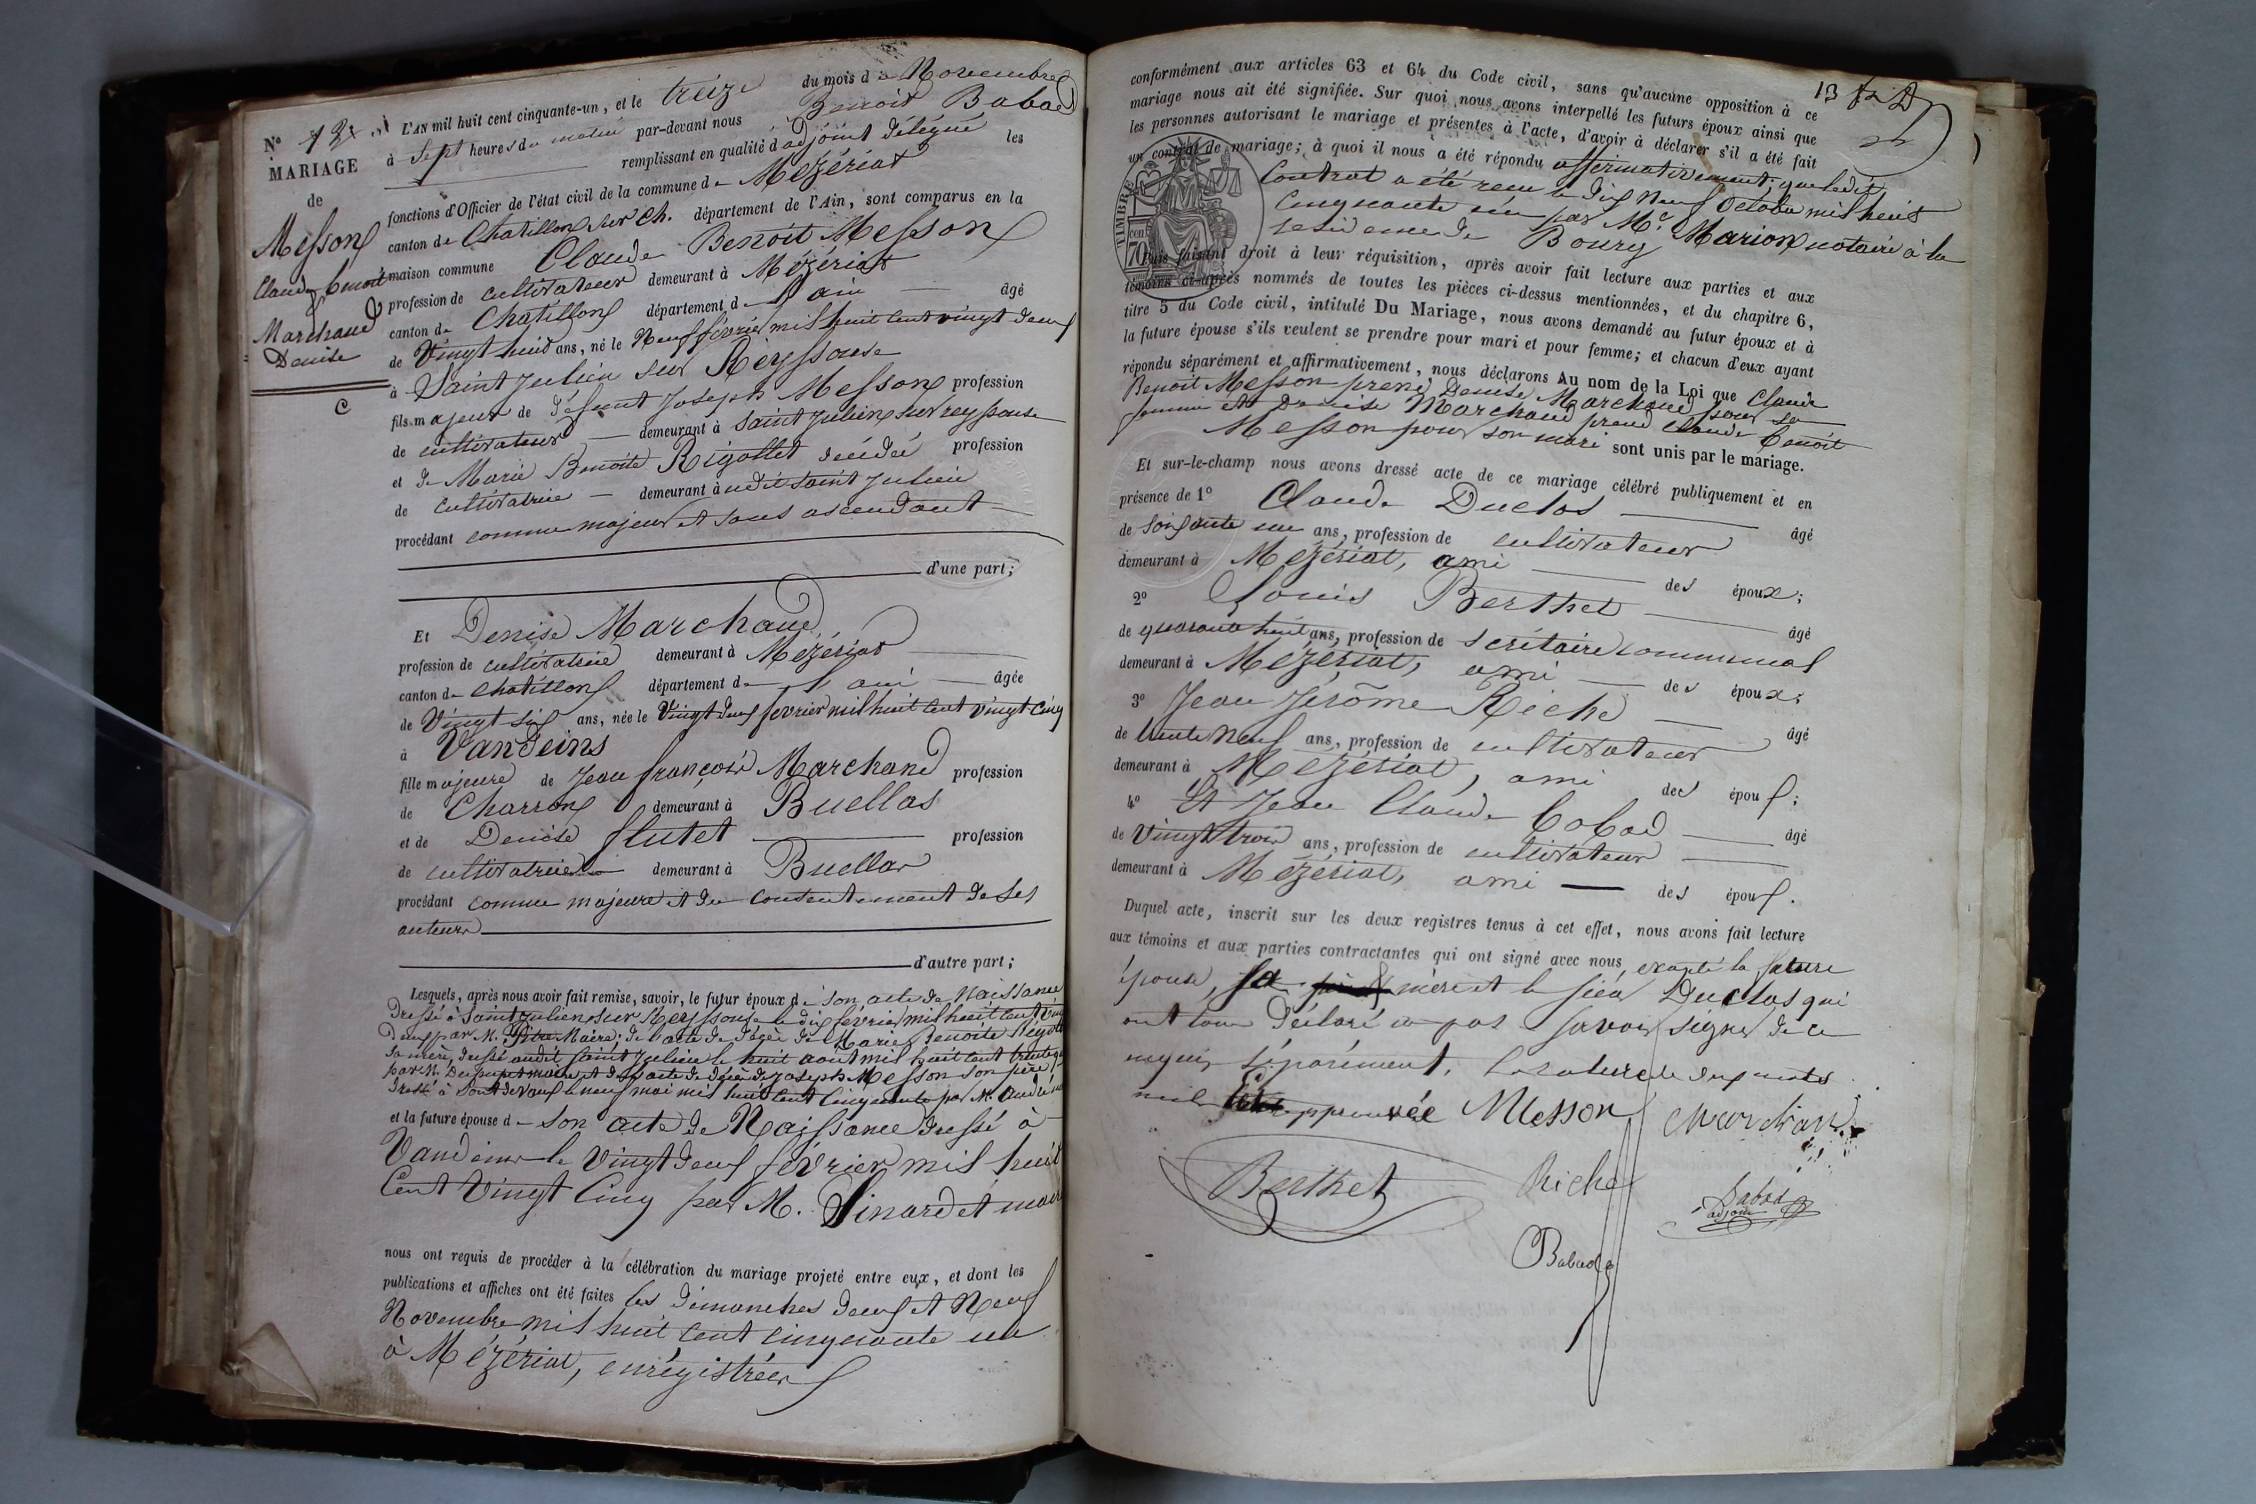 L'AN mil huit cent cinquante-un, et le treize du mois de Novembre
à Sept heures du matin par-devant nous Benoit Babad
remplissant en qualité d'adjoint délégué les
fonctions d'Officier de l'état civil de la commune de Mézériat
canton de Chatillon sur Ch. département de l'Ain, sont comparus en la
maison commune Claude Benoit Messon
profession de cultivateur demeurant à Mézériat
canton de Chatillon département de l'ain âgé
de Vingt huit ans, né le Neuf février mil huit cent vingt deux
à Saint Julien sur Reyssouse
fils majeur de défunt Joseph Messon profession
de cultivateur demeurant à Saint Julien sur reyssouse
et de Marie Benoite Rigottet décédée profession
de cultivatrice demeurant audit saint Julien
procédant comme majeur et sans ascendant
d'une part;
N° 13
MARIAGE
de
Messon
Claude benoit
&
Marchand
Denise
C
Et Denise Marchand
profession de cultivatrice demeurant à Mézériat
canton de Chatillon département de l'ain âgée
de Vingt six ans, née le Vingt deux février mil huit cent vingt cinq
à Vandeins
fille majeure de Jean françois Marchand profession
de Charron demeurant à Buellas
et de Denise flutet profession
de cultivatrice demeurant à Buellas
procédant comme majeure et du consentement de ses
auteurs
d'autre part;
Lesquels, après nous avoir fait remise, savoir, le futur époux de son acte de Naissance
Dressé à Saint Julien sur Reyssouse le dix février mil huit cent vingt
Deux par M. Maire; de l'acte de décès de Marie Benoite Rigottet
sa mère, dressé audit saint Julien le huit aout mil huit cent trente
par M. maire et de l'acte de décès de Joseph Messon son père
dressé à le neuf mai mil huit cent cinquante par M.
et la future épouse de son acte de Naissance dressé à
Vandeins le Vingt deux février mil huit
Cent Vingt Cinq par M. maire
nous ont requis de procéder à la célébration du mariage projeté entre eux, et dont les
publications et affiches ont été faites les dimanches deux et Neuf
Novembre mil huit cent cinquante un
à Mézériat, enrégistrées
13
conformément aux articles 63 et 64 du Code civil, sans qu'aucune opposition à ce
mariage nous ait été signifiée. Sur quoi nous avons interpellé les futurs époux ainsi que
les personnes autorisant le mariage et présentes à l'acte, d'avoir à déclarer s'il a été fait
un contrat de mariage; à quoi il nous a été répondu affirmativement; que ledit
Contrat a été recu le dix Neuf Octobre mil huit
Cinquante un par Me. Marion notaire à la
residence de Bourg
TIMBRE
70
Puis faisant droit à leur réquisition, après avoir fait lecture aux parties et aux
témoins ci-après nommés de toutes les pièces ci-dessus mentionnées, et du chapitre 6,
titre 5 du Code civil, intitulé Du Mariage, nous avons demandé au futur époux et à
la future épouse s'ils veulent se prendre pour mari et pour femme; et chacun d'eux ayant
répondu séparément et affirmativement, nous déclarons Au nom de la Loi que Claude
Benoit Messon prend Denise Marchand pour sa
femme et Denise Marchand prend claude benoit
Messon pour son mari sont unis par le mariage.
Et sur-le-champ nous avons dressé acte de ce mariage célébré publiquement et en
présence de 1° Claude Duclos âgé
de soixante un ans, profession de cultivateur
demeurant à Mézériat, ami des époux;
2° Louis Berthet âgé
de quarante huit ans, profession de secrétaire communal
demeurant à Mézériat, ami des époux;
3° Jean Jérôme Riche âgé
de trente neuf ans, profession de cultivateur
demeurant à Mézériat, ami des époux;
4° Et Jean Claude babad âgé
de Vingt trois ans, profession de cultivateur
demeurant à Mézériat, ami des époux.
Duquel acte, inscrit sur les deux registres tenus à cet effet, nous avons fait lecture
aux témoins et aux parties contractantes qui ont signé avec nous, excepté la future
épouse, sa mère et le sieur Duclos qui
ont tous déclaré ne pas savoir signer de ce
requis séparément, la rature de deux mots
nuls approuvée Messon Marchand
Berthet Riche Babad
adjoint
Babad